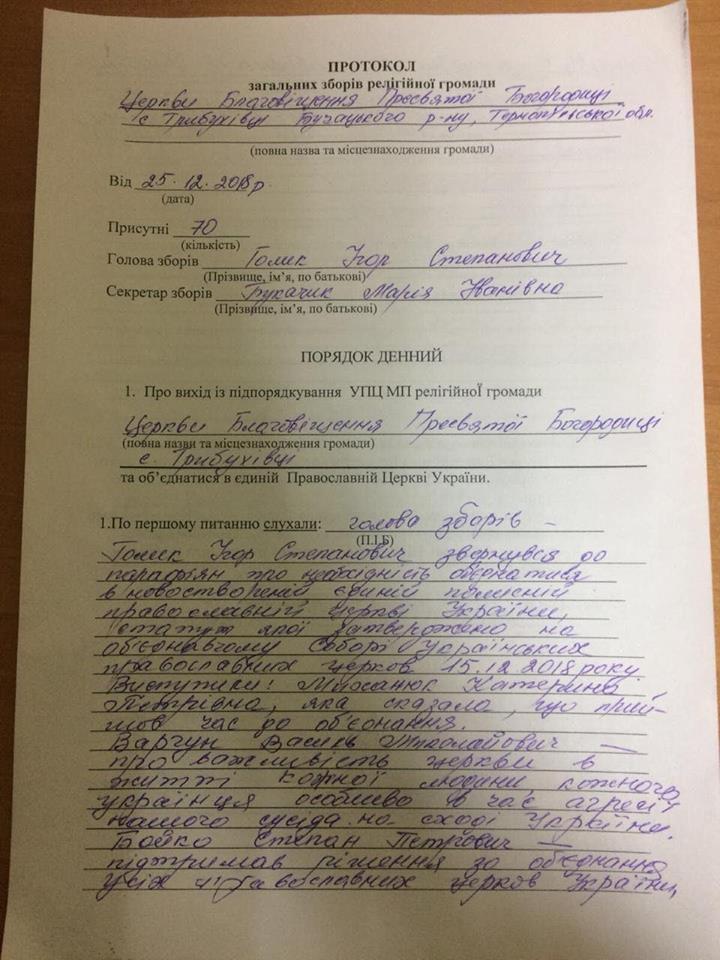 ПРОТОКОЛ
загальних зборів релігійної громади
Церкви Благовіщення Пресвятої Богородиці
с Трибухівці Бучацького р-ну, Тернопільської обл.
(повна назва та місцезнаходження громади)
Від 25.12.2018р.
(дата)
Присутні 70
(кількість)
Голова зборів Голик Ігор Степанович
(Прізвище, ім’я, по батькові)
Секретар зборів Букачик Марія Іванівна
(Прізвище, ім’я, по батькові)
ПОРЯДОК ДЕННИЙ
1. Про вихід із підпорядкування УПЦ МП релігійноЇ громади
Церкви Благовіщення Пресвятої Богородиці
(повна назви та місцезнаходження громади)
с. Трибухівці
та об’єднатися в єдиній Православній Церкві України.
1.По першому питанню слухали: голова зборів –
(П.І.Б)
Голик Ігор Степанович звернувся до
парафіян про необхідність обєднатися
в новоствореній єдиній помісній
православній церкві України,
статут якої затверджено на
об'єднавчому Соборі Українських
православних церков 15.12.2018 року
Виступили: Катерина
Петрівна, яка сказала, що прий-
шов час до об'єднання.
Варгун Василь Миколайович –
про важливість церкви в
житті кожної людини кожного
українця особливо в час агресії
нашого сусіда на сході України.
Бойко Степан Петрович –
підтримав рішення за обєднання
усіх православних церков України,